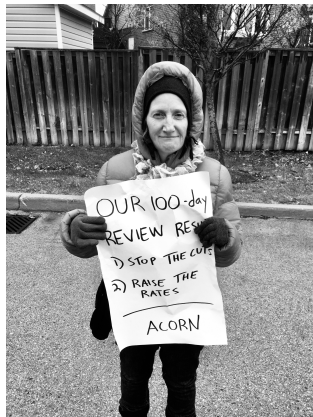 OUR 100-day
REVIEW
1) STOP THE CUTS
2) RAISE THE
RATES
ACORN